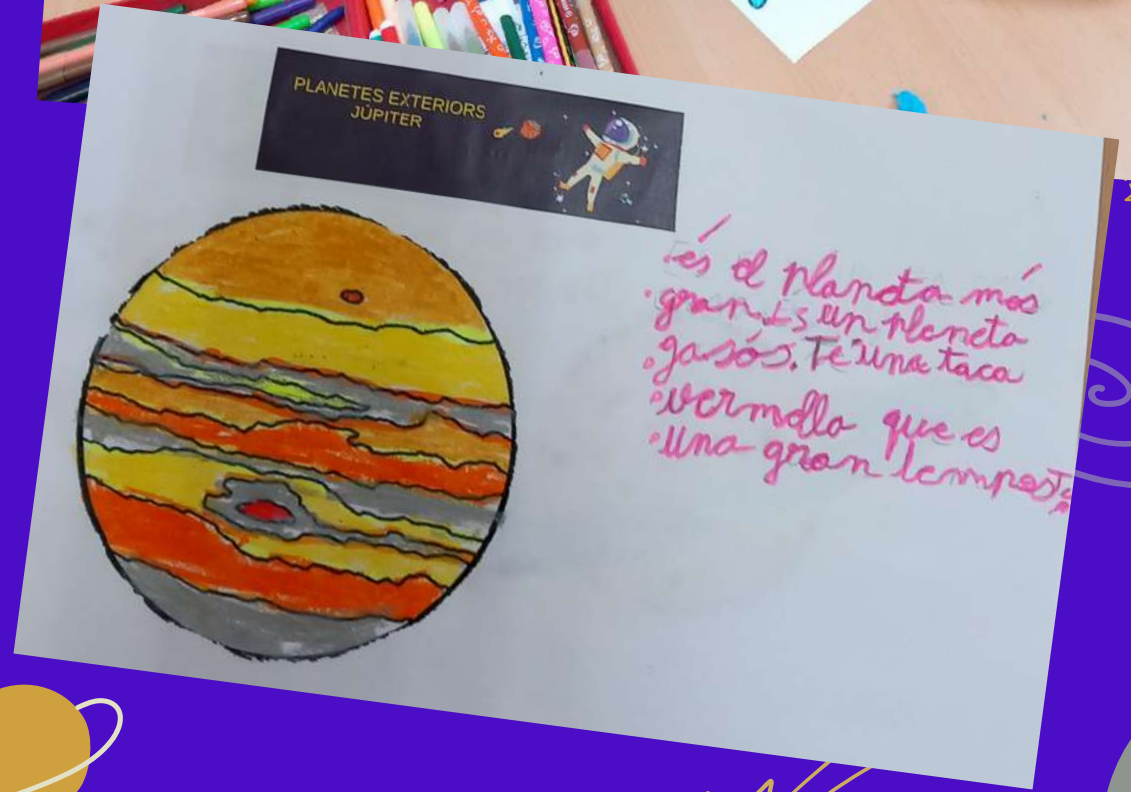 PLANETES EXTERIORS
JÚPITER
és el planeta més
gran. És un planeta
gasós. Té una taca
vermella que es
una gran tempesta